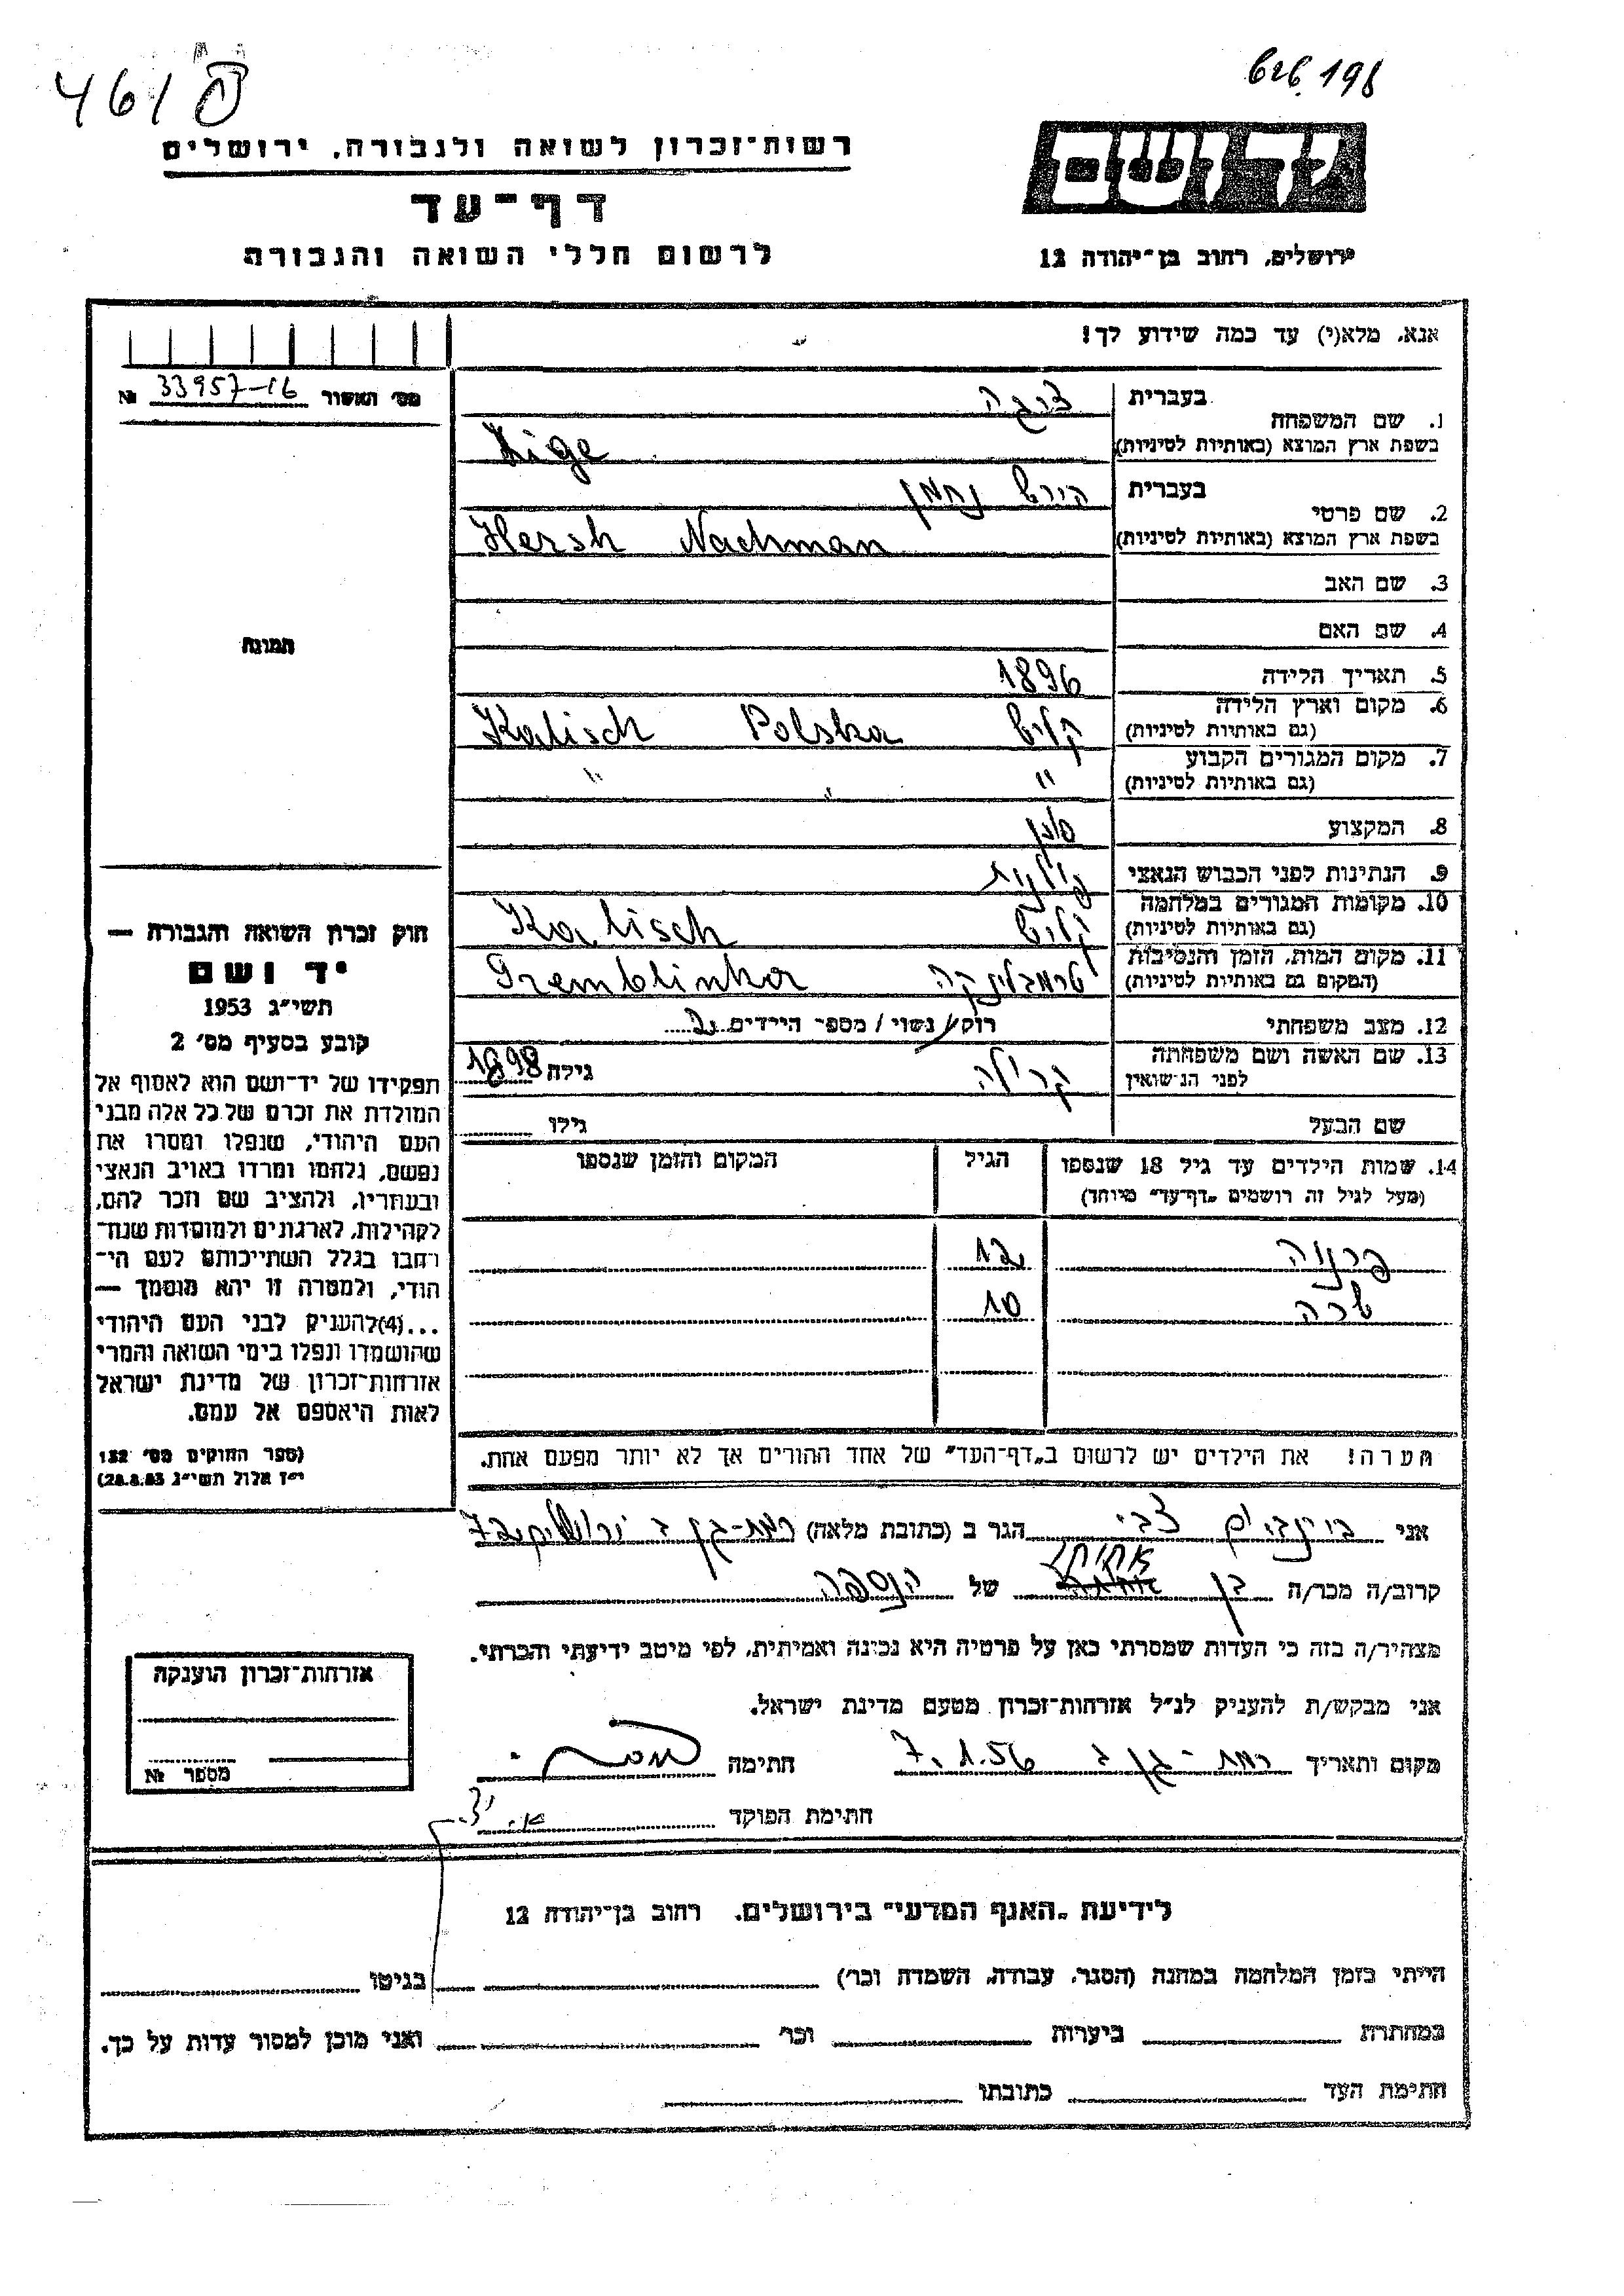 461
198
רשות־זכרון לשואה ולגבורה, ירושלים
דף־עד
לרשום חללי השואה והגבורה
ידושם
ירושלים, רחוב בן־יהודה 12
אנא, מלא(י) עד כמה שידוע לך!
מס׳ האשור 33957-16 №
1. שם המשפחה
בעברית
בשפת ארץ המוצא (באותיות לטיניות) Zige
2. שם פרטי
בעברית הירש נחמן
בשפת ארץ המוצא (באותיות לטיניות) Hersh Nachman
3. שם האב
4. שם האם
תמונה
5. תאריך הלידה 1896
6. מקום וארץ הלידה
(גם באותיות לטיניות) קליש Polska Kalisch
7. מקום המגורים הקבוע
(גם באותיות לטיניות) " " "
8. המקצוע סוכן
9. הנתינות לפני הכבוש הנאצי פולנית
10. מקומות המגורים במלחמה
(גם באותיות לטיניות) קליש Kalisch
11. מקום המות, הזמן והנסיבות
(המקום גם באותיות לטיניות) טרמבלינקה Tremblinka
12. מצב משפחתי רוק/ נשוי / מספר הילדים 2
13. שם האשה ושם משפחתה
לפני הנשואין גילה 1898
שם הבעל גילו
14. שמות הילדים עד גיל 18 שנספו הגיל המקום והזמן שנספו
(מעל לגיל זה רושמים „דף־עד״ מיוחד)
12
שרה 10
הערה! את הילדים יש לרשום ב„דף־העד״ של אחד ההורים אך לא יותר מפעם אחת.
חוק זכרון השואה והגבורה —
יד ושם
תשי״ג 1953
קובע בסעיף מס׳ 2
תפקידו של יד־ושם הוא לאסוף אל
המולדת את זכרם של כל אלה מבני
העם היהודי, שנפלו ומסרו את
נפשם, נלחמו ומרדו באויב הנאצי
ובעוזריו, ולהציב שם וזכר להם,
לקהילות, לארגונים ולמוסדות שנח־
רחבו בגלל השתייכותם לעם הי־
הודי, ולמטרה זו יהא מוסמך —
...(4)להעניק לבני העם היהודי
שהושמדו ונפלו בימי השואה והמרי
אזרחות־זכרון של מדינת ישראל
לאות היאספם אל עמם.
(ספר החוקים מס׳ 132
י״ז אלול תשי״ג 28.8.53)
אני צבי הגר ב (כתובת מלאה) רמת-גן
קרוב/ה מכר/ה בן אחות של הנספה
מצהיר/ה בזה כי העדות שמסרתי כאן על פרטיה היא נכונה ואמיתית, לפי מיטב ידיעתי והכרתי.
אני מבקש/ת להעניק לנ״ל אזרחות־זכרון מטעם מדינת ישראל.
מקום ותאריך רמת-גן 7.1.56 חתימה
חתימת הפוקד
אזרחות־זכרון הוענקה
מספר №
לידיעת „האגף המדעי״ בירושלים, רחוב בן־יהודה 12
הייתי בזמן המלחמה במחנה (הסגר, עבודה, השמדה וכר׳) בגיטו
במחתרת ביערות וכר׳ ואני מוכן למסור עדות על כך.
חתימת העד כתובתו